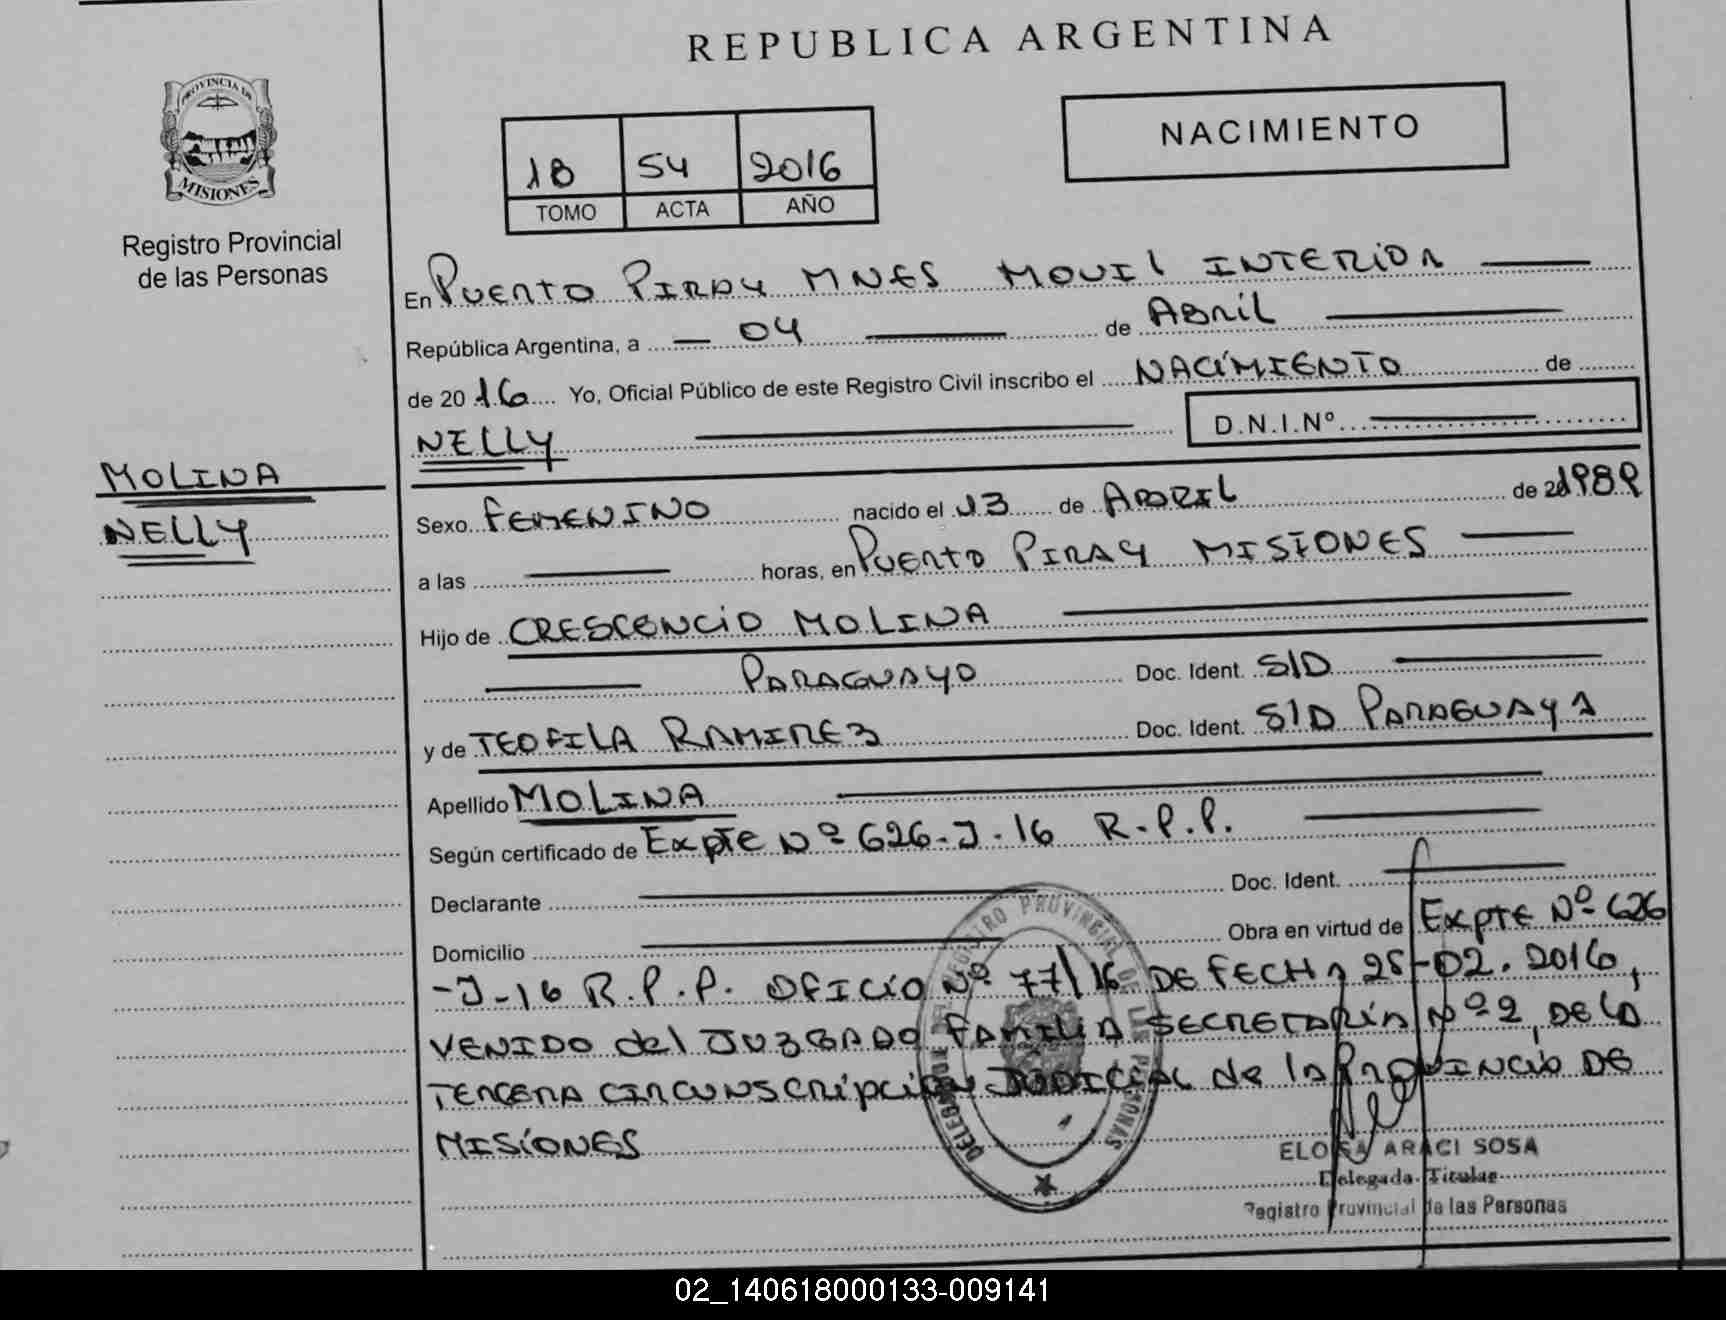 REPUBLICA ARGENTINA
PROVINCIA DE
MISIONES
Registro Provincial
de las Personas
NACIMIENTO
18 54 2016
TOMO ACTA AÑO
En PUERTO PIRAY MNES MOVIL INTERIOR
República Argentina, a 04 de Abril
de 2016 Yo, Oficial Público de este Registro Civil inscribo el NACIMIENTO de
NELLY D.N.I.Nº
MOLINA
NELLY
Sexo FEMENINO nacido el 13 de ABRIL de 1989
a las horas, en PUERTO PIRAY MISIONES
Hijo de CRESCENCIO MOLINA
PARAGUAYO Doc. Ident. S/D
y de TEOFILA RAMIREZ Doc. Ident. S/D PARAGUAYA
Apellido MOLINA
Según certificado de Expte Nº 626-J-16 R.P.P.
Declarante Doc. Ident.
Domicilio Obra en virtud de Expte Nº 626
-J-16 R.P.P. OFICIO Nº 77/16 DE FECHA 25-02.2016,
VENIDO del JUZGADO FAMILIA SECRETARÍA Nº 2, DE LA
TERCERA CIRCUNSCRIPCIÓN JUDICIAL de la PROVINCIA DE
MISIONES
ELOISA ARACI SOSA
Delegada Titular
Registro Provincial de las Personas
02_140618000133-009141